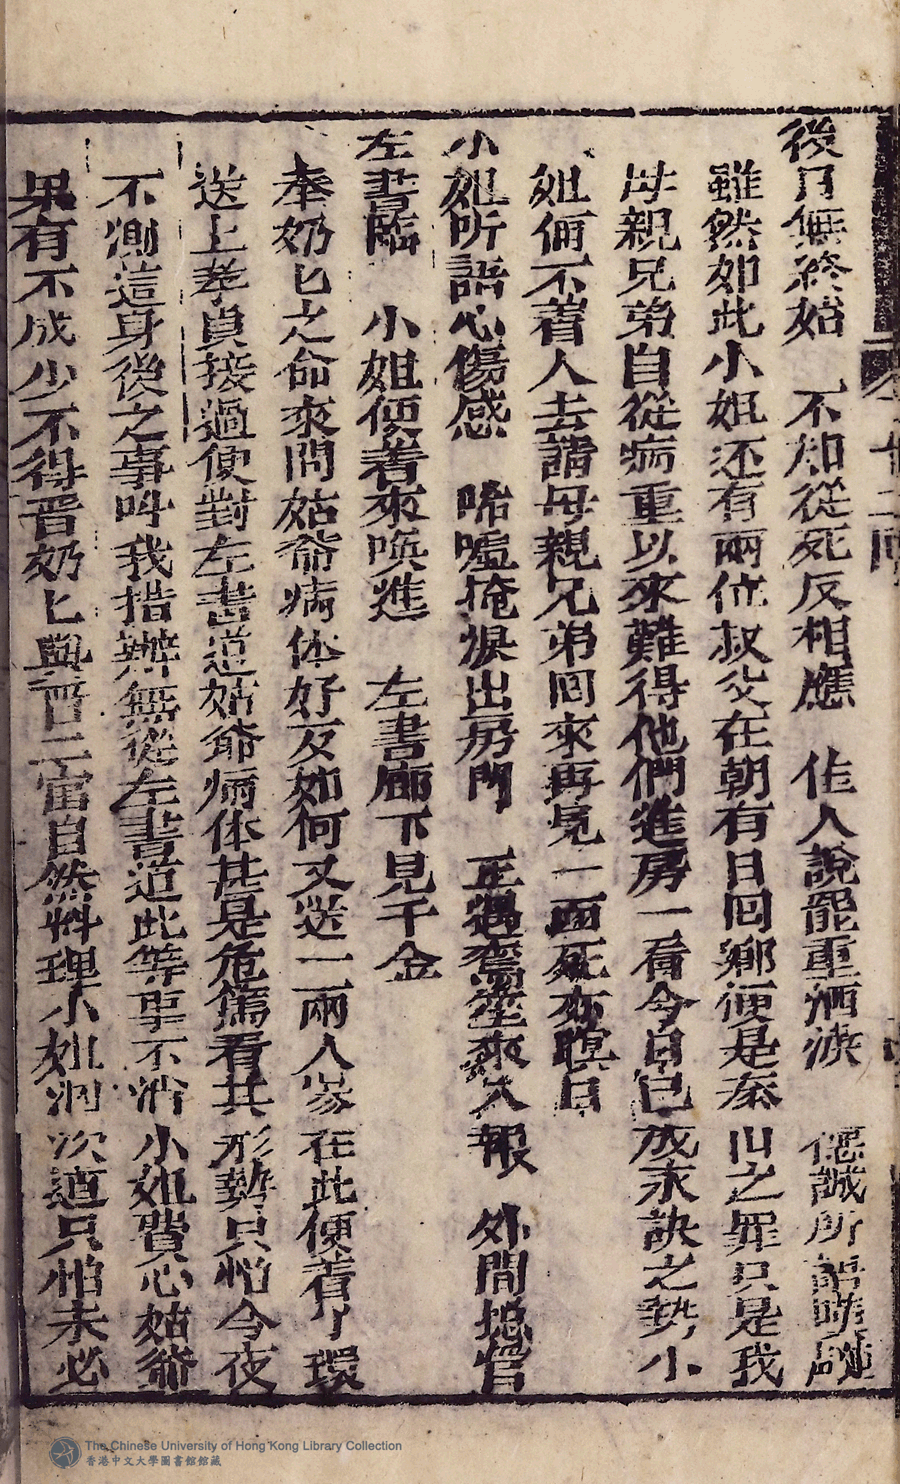 後日無終始　不知從死反相應　佳人說罷重洒淚　偲誠所語時
雖然如此小姐还有兩位叔父在朝有日囘鄉便是泰山之罪只是我
母親兄弟自從病重以來難得他們進房一看今自已成永訣之勢小
姐俩不着人去請母親兄弟囘來再見一面死亦瞑目
小姐所語心傷感　唏噓掩淚出房門　正遇鸞笙來入報　外間摠管
左書臨　小姐便着來喚進　左書廊下見千金
奉奶匕之命來問姑爺病体好歹如何又送一兩人參在此便着丫環
送上孝貞接過便對左書道姑爺病体甚是危篤看其形勢只怕今夜
不測這身後之事呌我措辦無從左書道此等事不消小姐費心姑爺
果有不成少不得晋奶匕與晋二宙自然料理小姐洞次道只怕未必
十二回
The Chinese University of Hong Kong Library Collection
香港中文大學圖書館館藏